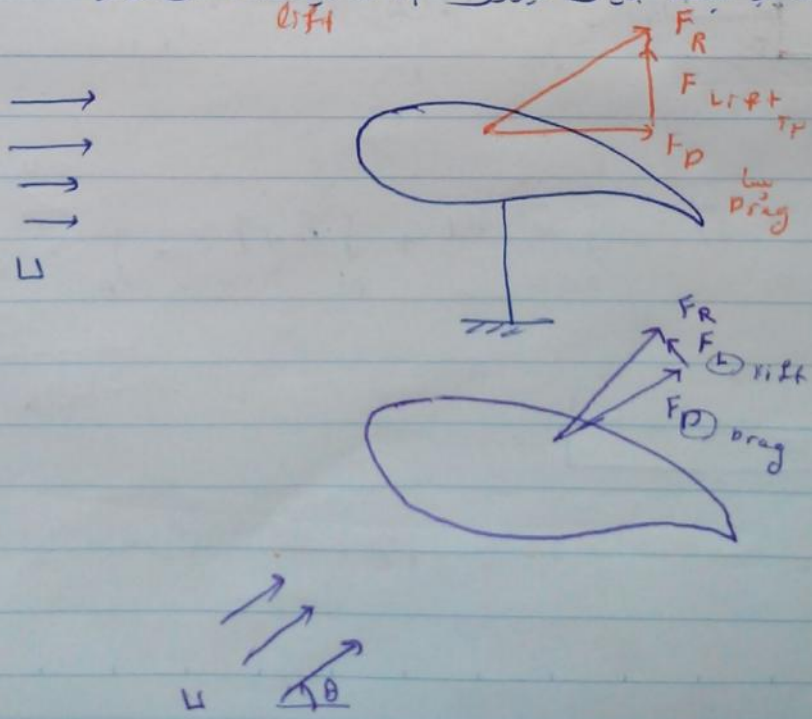 lift
F_R
F_Lift
F_D
Drag
U
F_R
F_L lift
F_D Drag
U θ